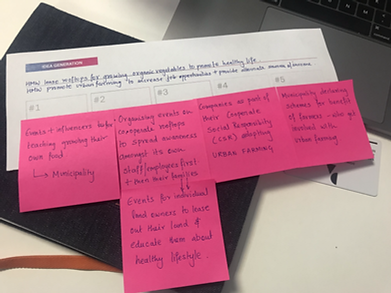 IDEA GENERATION
HMW lease rooftops for growing organic vegetables to promote healthy life
HMW promote urban farming to increase job opportunities + provide alternate sources of income
#1
#2
#3
#4
#5
Events + influencers
teaching growing their
own food
↳ Municipality
Organising events on
cooperate rooftops
to spread awareness
amongst its own
staff/employees first
+ then their families
Companies as part of
their Cooperate
Social Responsibility
(CSR) adopting
URBAN FARMING
Municipality
schemes for benefit
of farmers - who get
involved with
Urban farming
Events for individual
land owners to lease
out their land &
educate them about
healthy lifestyle.